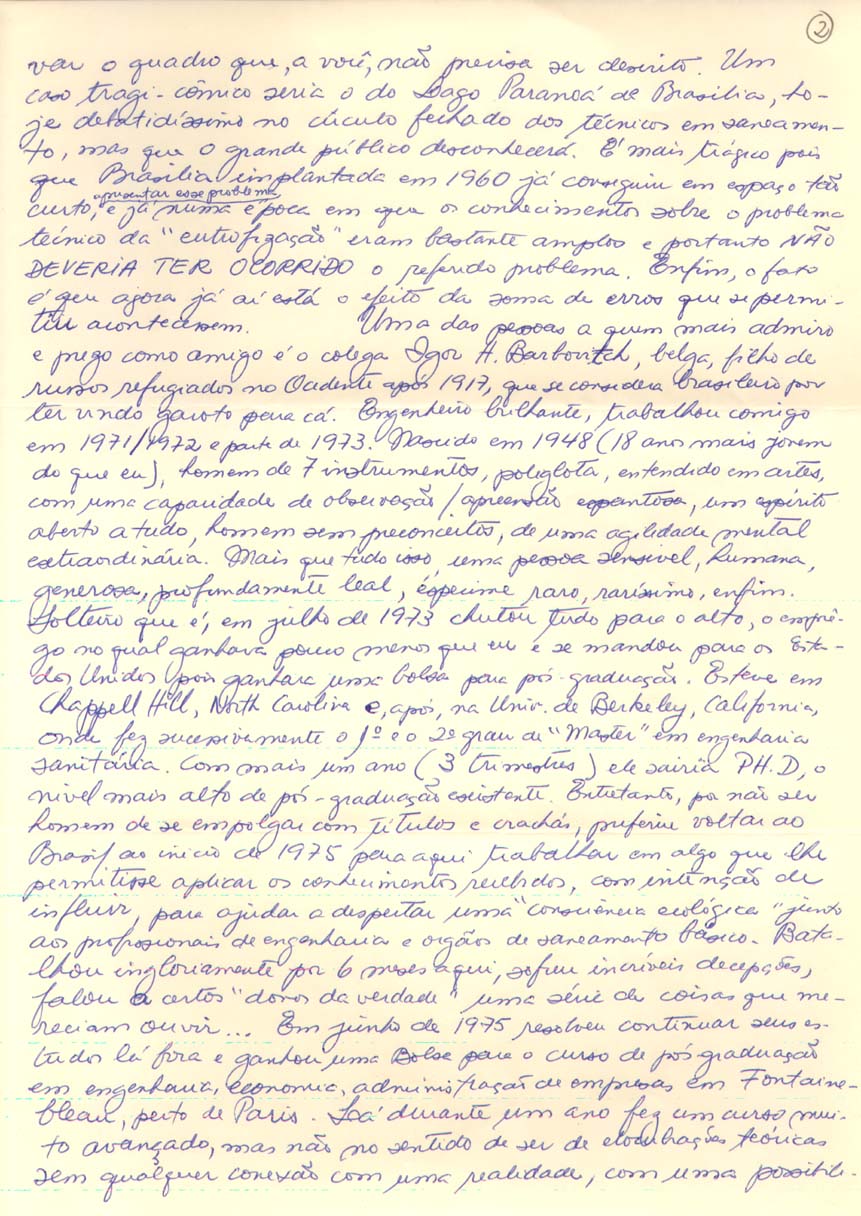 2
var o quadro que, a você, não precisa ser descrito. Um
caso tragi-cômico seria o do Lago Paranoá de Brasilia, ho-
je debatidíssimo no círculo fechado dos técnicos em saneamen-
to, mas que o grande público desconhecerá. É mais trágico pois
que Brasilia implantada em 1960 já conseguiu em espaço tão
apresentar esse problema
curto, e já numa época em que os conhecimentos sobre o problema
técnico da "eutrofização" eram bastante amplos e portanto NÃO
DEVERIA TER OCORRIDO o referido problema. Enfim, o fato
é que agora já aí está o efeito da soma de erros que se permi-
tiu acontecessem. Uma das pessoas a quem mais admiro
e prezo como amigo é o colega Igor A. Barbovitch, belga, filho de
russos refugiados no Ocidente após 1917, que se considera brasileiro por
ter vindo garoto para cá. Engenheiro brilhante, trabalhou comigo
em 1971/1972 e parte de 1973. Nascido em 1948 (18 anos mais jovem
do que eu), homem de 7 instrumentos, poliglota, entendido em artes,
com uma capacidade de observação/apreensão espantosa, um espírito
aberto a tudo, homem sem preconceitos, de uma agilidade mental
extraordinária. Mais que tudo isso, uma pessoa sensivel, humana,
generosa, profundamente leal, éspecime raro, raríssimo, enfim.
Solteiro que é, em julho de 1973 chutou tudo para o alto, o emprê-
go no qual ganhava pouco menos que eu e se mandou para os Esta-
dos Unidos pois ganhara uma bolsa para pós-graduação. Esteve em
Chappell Hill, North Carolina e, após, na Univ. de Berkeley, California,
onde fez sucessivamente o 1º e o 2º grau de "Master" em engenharia
sanitária. Com mais um ano (3 trimestres) ele sairia PH.D, o
nivel mais alto de pós-graduação existente. Entretanto, por não ser
homem de se empolgar com títulos e crachás, preferiu voltar ao
Brasil ao inicio de 1975 para aqui trabalhar em algo que lhe
permitisse aplicar os conhecimentos recebidos, com intenção de
influir, para ajudar a despertar uma "consciência ecológica" junto
aos profissionais de engenharia e orgãos de saneamento básico. Bata-
lhou ingloriamente por 6 meses aqui, sofreu incríveis decepções,
falou a certos "donos da verdade" uma série de coisas que me-
reciam ouvir... Em junho de 1975 resolveu continuar seus es-
tudos lá fora e ganhou uma Bolsa para o curso de pós graduação
em engenharia, economia, administração de empresas em Fontaine-
bleau, perto de Paris. Lá durante um ano fez um curso mui-
to avançado, mas não no sentido de ser de elocubrações teóricas
sem qualquer conexão com uma realidade, com uma possibili-